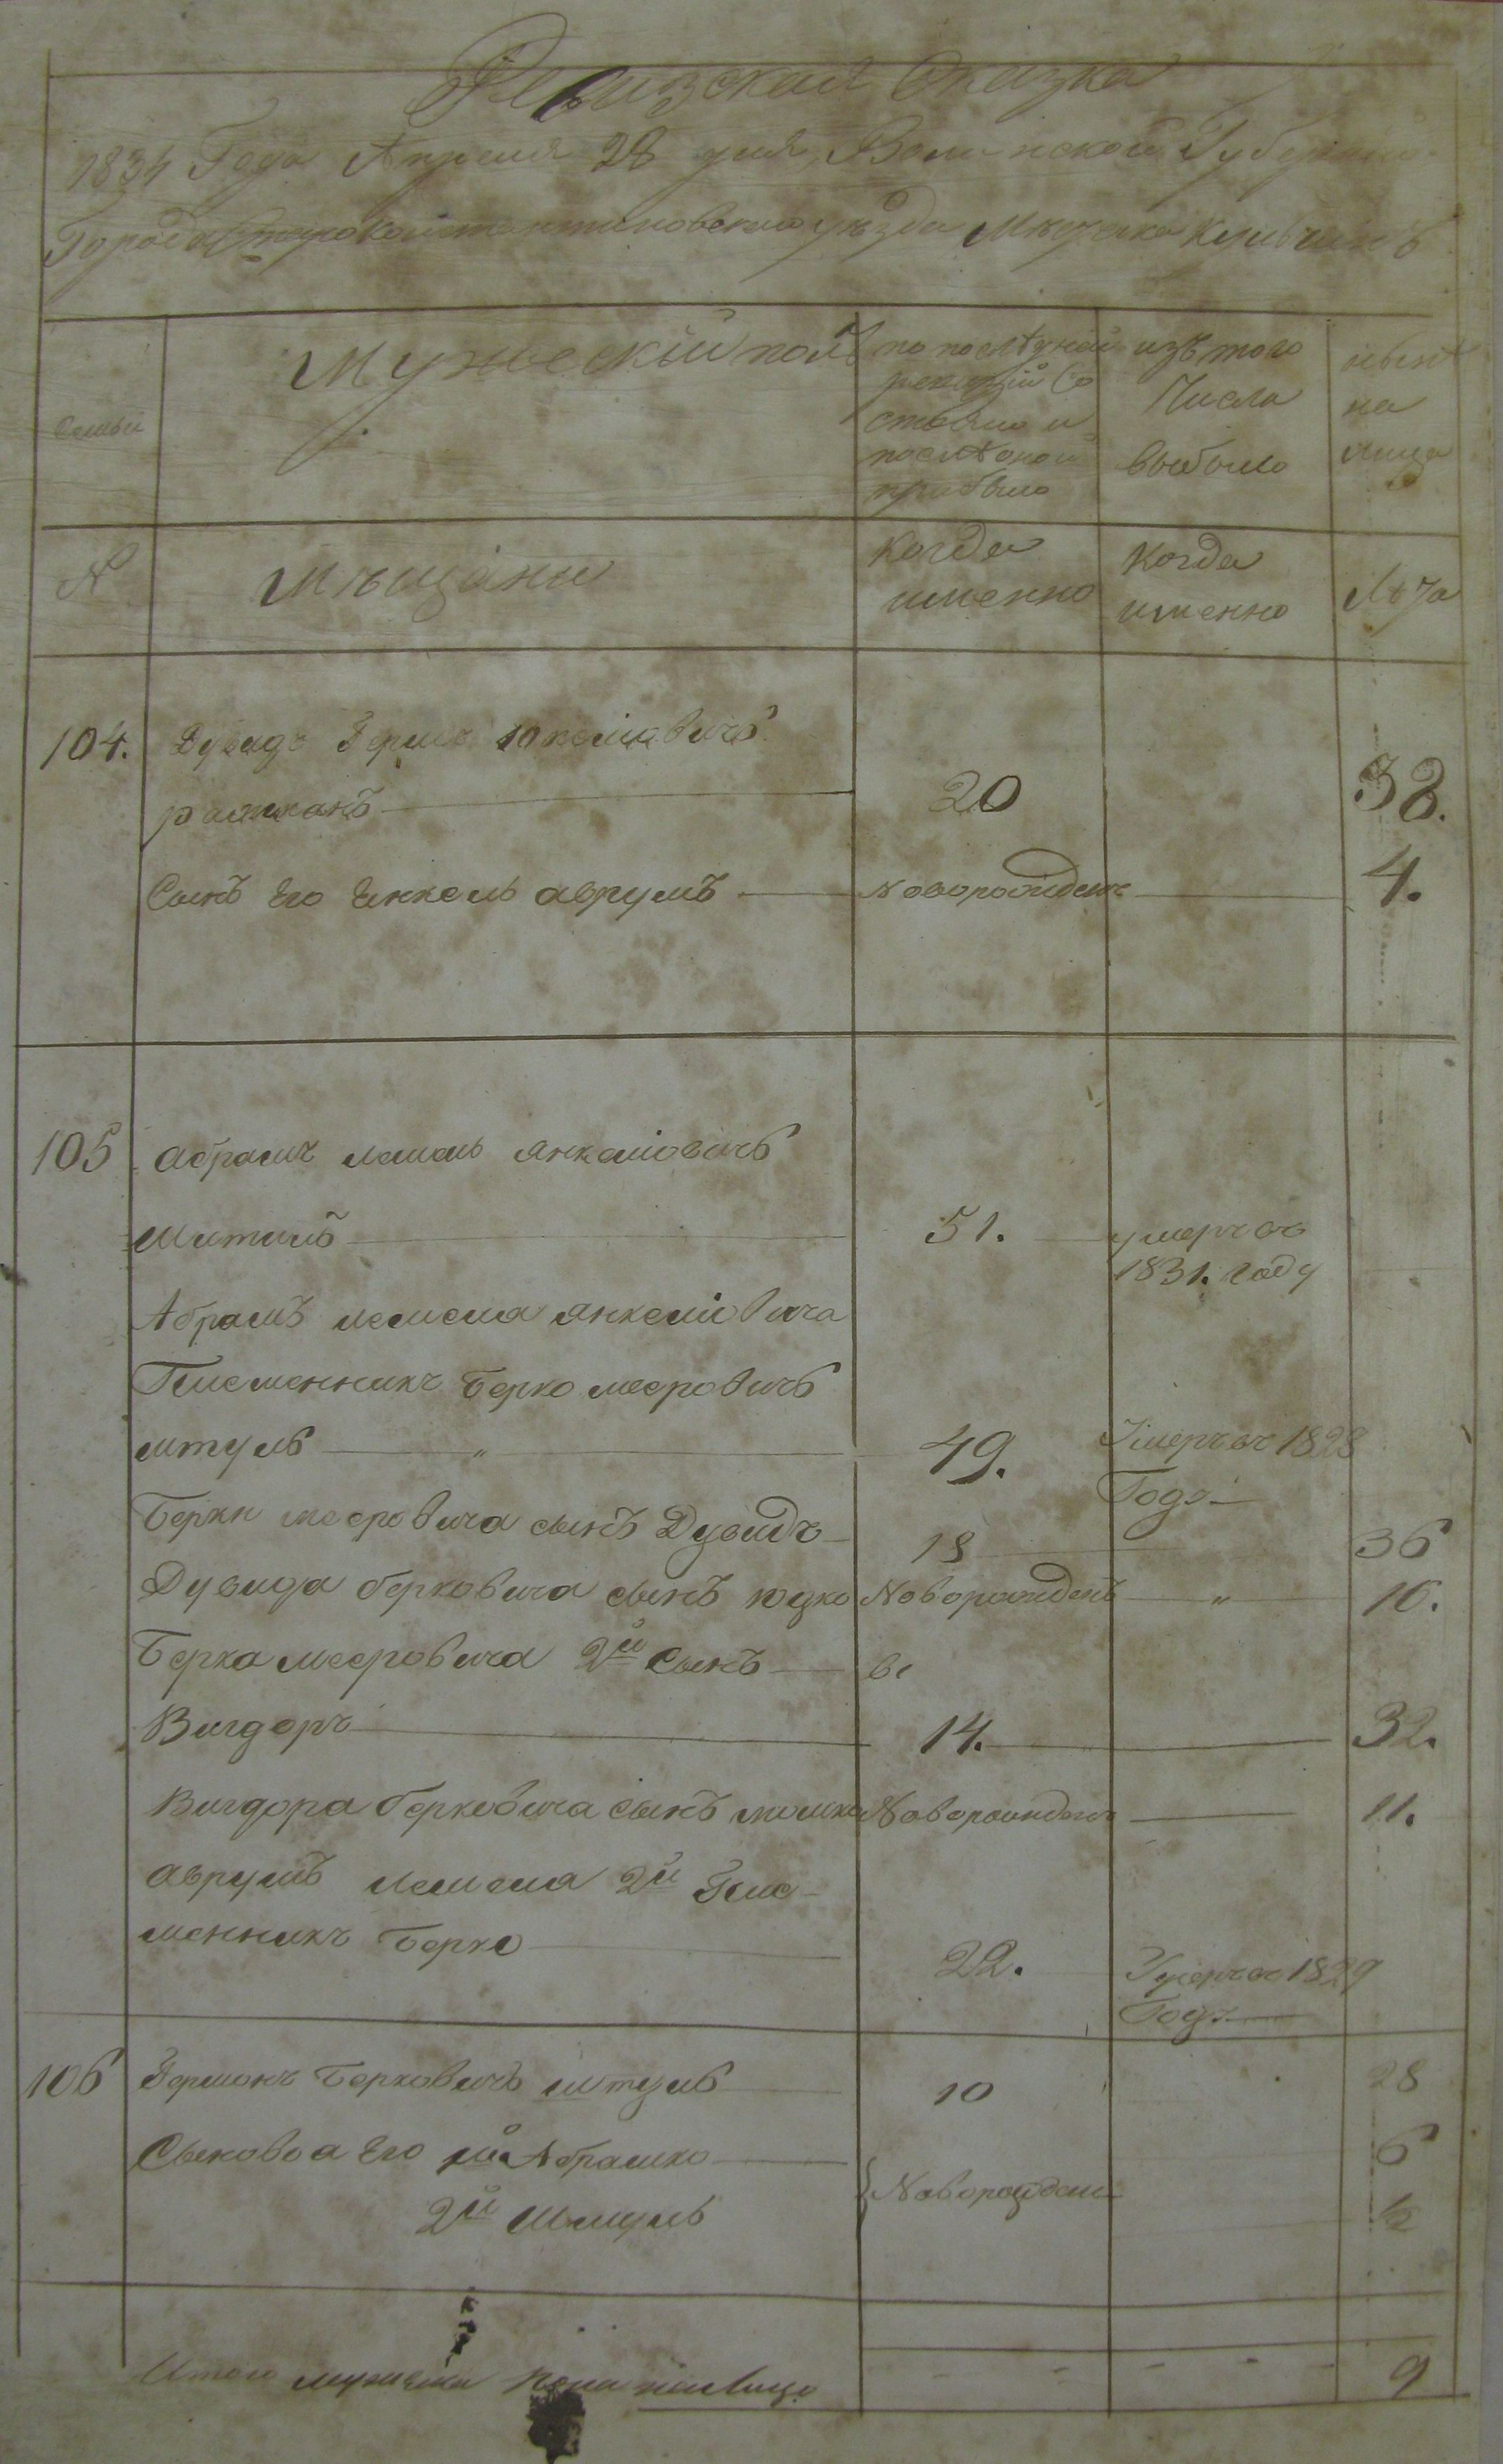 Ревизская Сказка
1834 Года Апреля 28 дня Волынской Губернии
Города Староконстантиновского уѣзда Мѣстечка
Семьи
Мужеский полъ
по послѣдней
ревизіи со
стояло и
послѣ оной
прибыло
изъ того
Числа
выбыло
нынѣ
на
лицо
N
Мѣщане
Когда
именно
Когда
именно
Лѣта
104. Дувидъ Герш
20 38.
Сынъ Его Енкель аврумъ Новорожденъ 4.
105 абрамъ лемель янкеліовичъ
Штиль 51. умеръ въ
1831. году
Абрамъ лемеля янкеліовича
Племенникъ Берко мееровичъ
штуль 49. Умеръ въ 1828
Годъ
Берки мееровича сынъ Дувидъ 18 36
Дувида берковича сынъ юдко Новорожденъ " 16.
Берка мееровича 2й Сынъ
Вигдоръ 14. 32.
Вигдора берковича сынъ мошко Новорожденъ 11.
аврумъ лемеля 2й Плем
менникъ Берко 22. Умеръ въ 1829
Годъ
106 Гершонъ Берковичъ штуль 10 28
Сыновъа Его 1й Абрамко 6
Новорожден
2й Шмуль ½
Итого мужеска пола на лицо 9